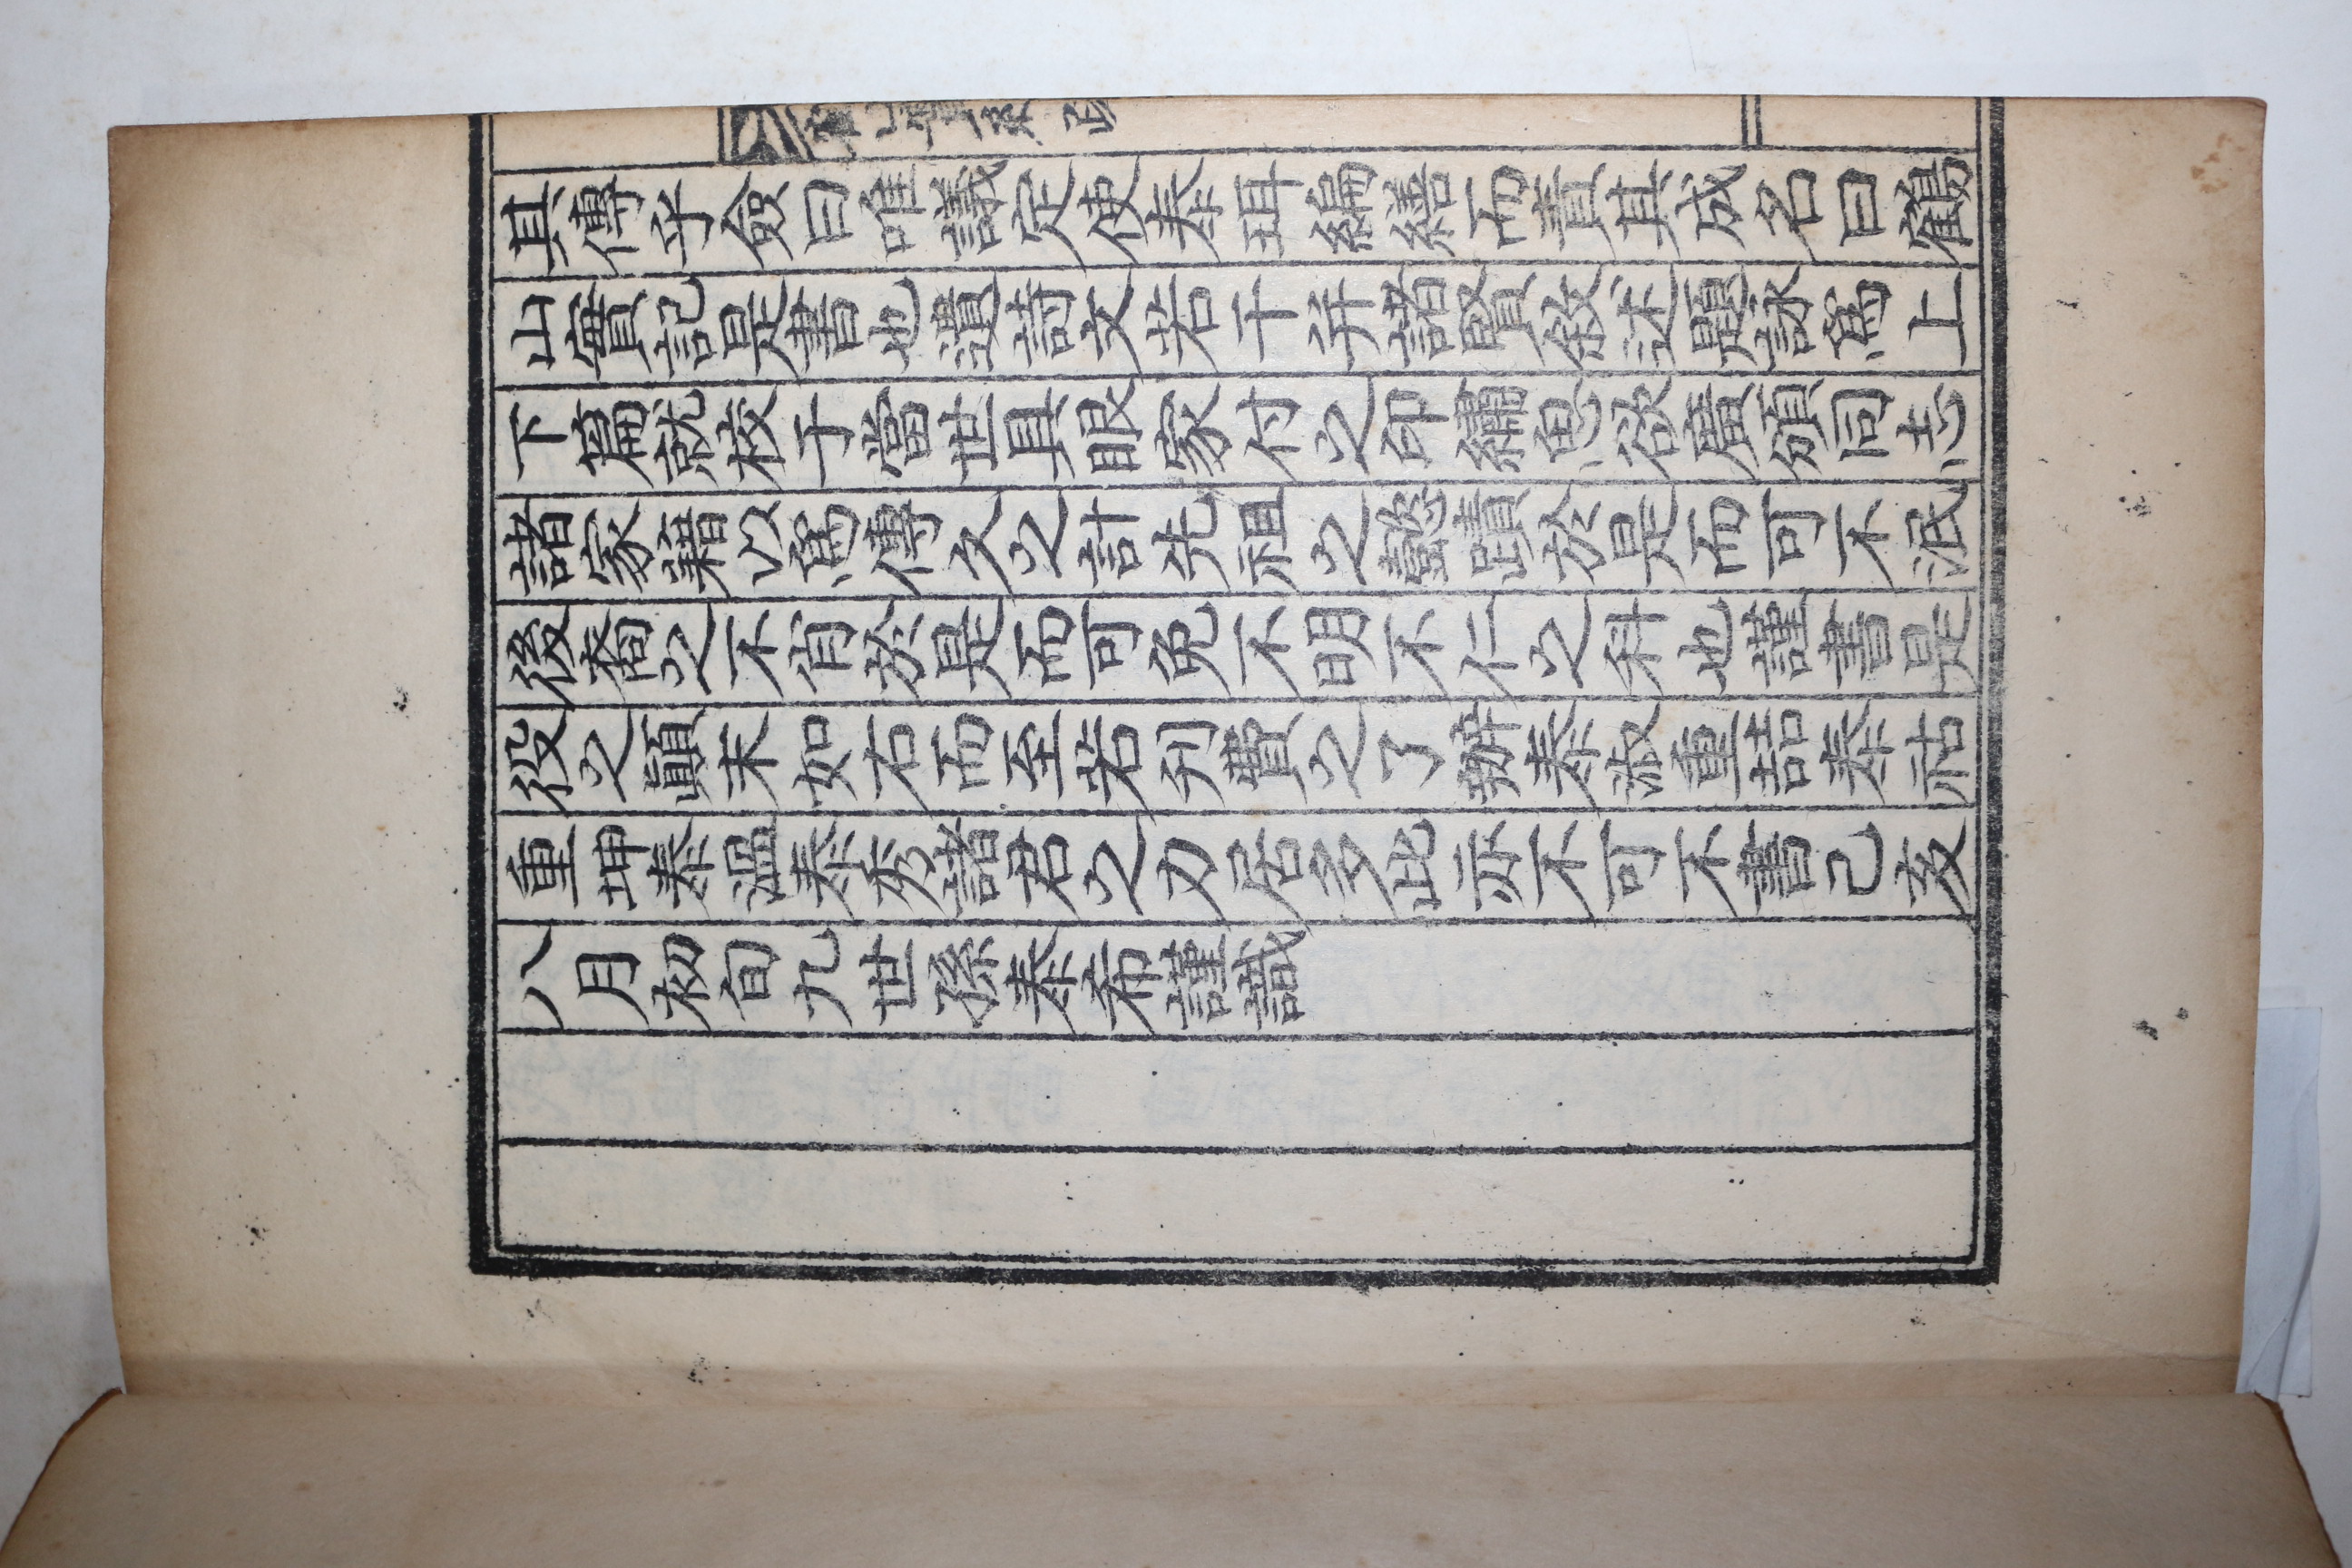 其傳乎僉曰唯議定使泰珥編繕而責其成名曰鶴
山實記是書也遺詩文若干并諸賢敍述題詠爲上
下篇就校于當世具眼家付之印繡急欲廣頒同志
諸家籍以爲傳久之計先祖之懿蹟於是而可不泯
後裔之不肖於是而可免不明不仁之科也謹書是
役之顚末如右而至若刋費之了辦泰淑重喆泰祜
重坤泰溫泰秀諸君之力居多此亦不可不書己亥
八月初旬九世孫泰希謹識